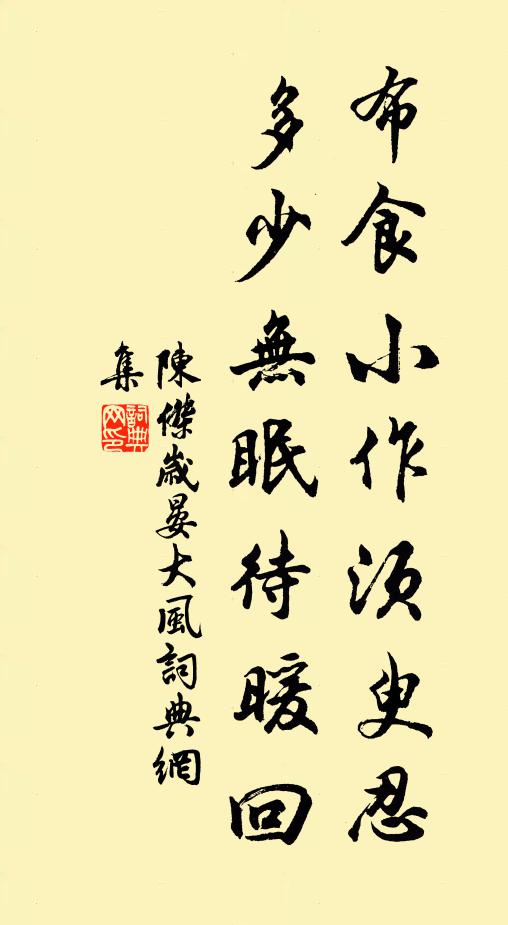 布食小作須臾忍
多少無眠待暖回
陳傑歲晏大風詞典網
集
詞典
网印